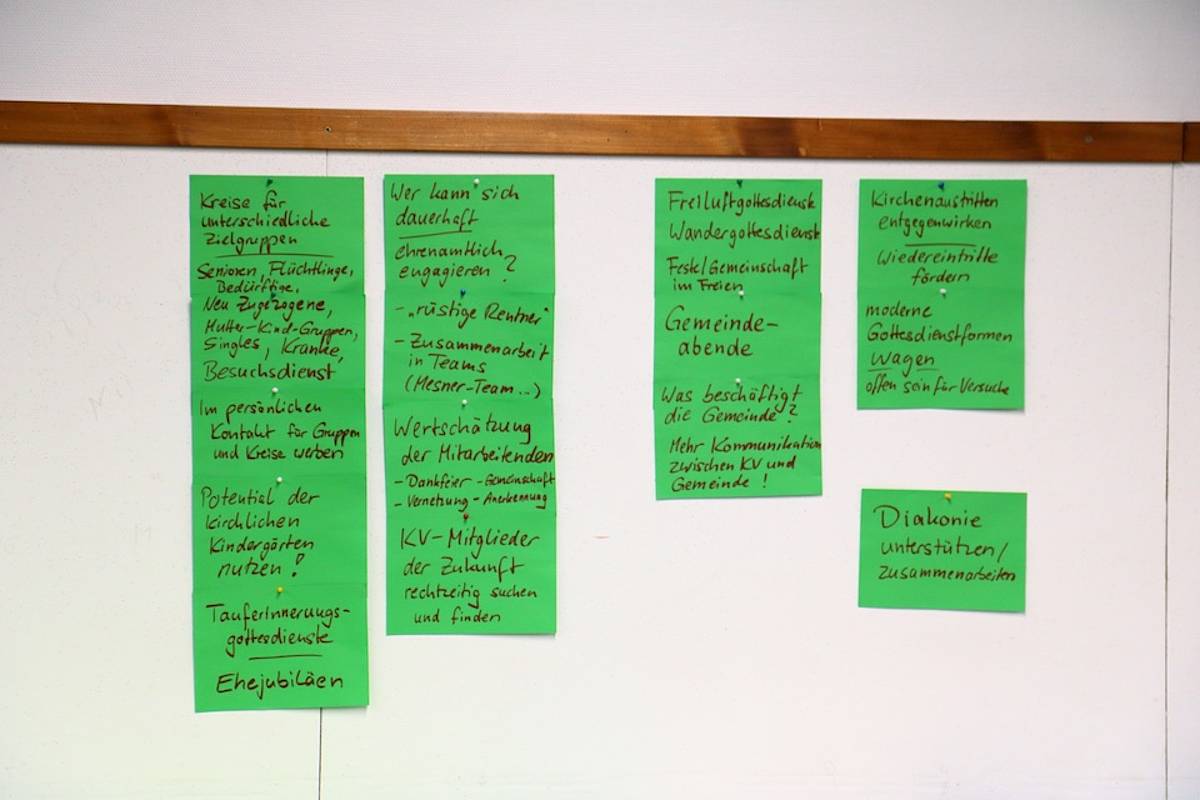 Kreise für
unterschiedliche
Zielgruppen
Senioren, Flüchtlinge,
Bedürftige,
Neu Zugezogene,
Mutter-Kind-Gruppen,
Singles, Kranke,
Besuchsdienst
Im persönlichen
Kontakt für Gruppen
und Kreise werben
Potential der
kirchlichen
Kindergärten
nutzen!
Tauferinnerungs-
gottesdienste
Ehejubiläen
Wer kann sich
dauerhaft
ehrenamtlich
engagieren?
- "rüstige Rentner"
- Zusammenarbeit
in Teams
(Mesner-Team...)
Wertschätzung
der Mitarbeitenden
- Dankfeier - Gemeinschaft
- Vernetzung - Anerkennung
KV-Mitglieder
der Zukunft
rechtzeitig suchen
und finden
Freiluftgottesdienste
Wandergottesdienst
Feste/Gemeinschaft
im Freien
Gemeinde-
abende
Was beschäftigt
die Gemeinde?
Mehr Kommunikation
zwischen KV und
Gemeinde!
Kirchenaustritten
entgegenwirken
Wiedereintritte
fördern
moderne
Gottesdienstformen
wagen
offen sein für Versuche
Diakonie
unterstützen/
zusammenarbeiten